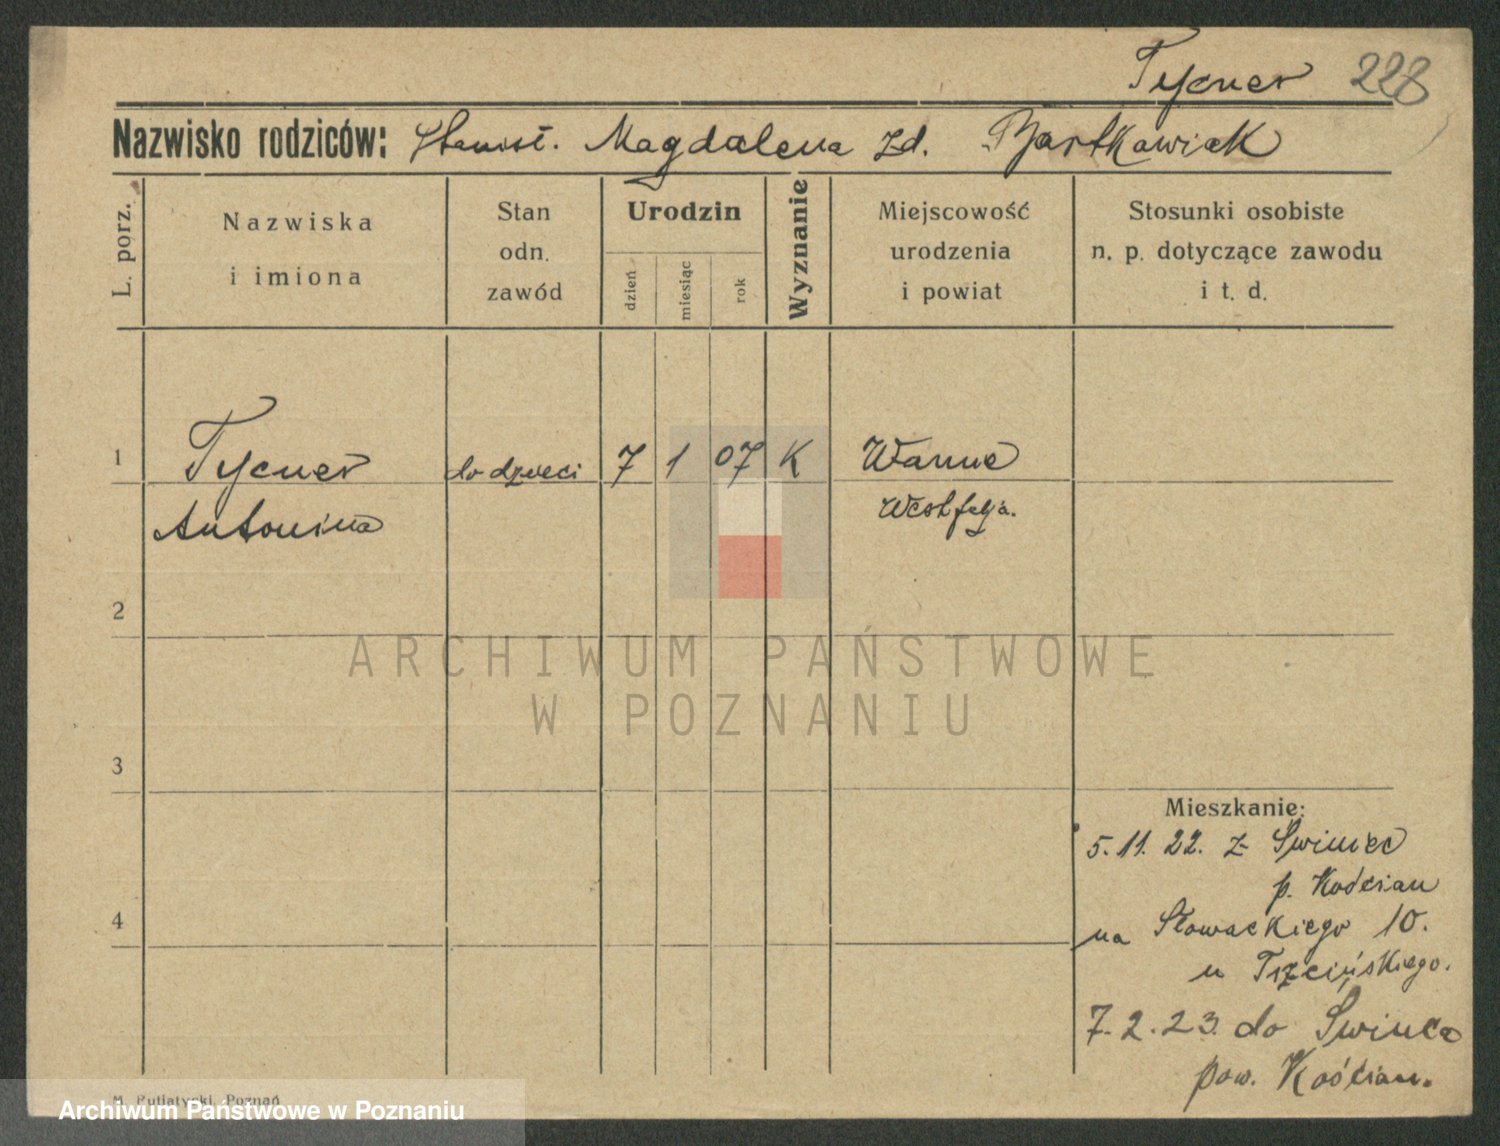 Tycner 228
Nazwisko rodziców: Stanisł. Magdalena zd. Bartkowiak
L. porz.
Nazwiska
i imiona
Stan
odn.
zawód
Urodzin
dzień
miesiąc
rok
Wyznanie
Miejscowość
urodzenia
i powiat
Stosunki osobiste
n. p. dotyczące zawodu
i t. d.
1 Tycner do dzieci 7 1 07 K Wanne
Antonina Westfalja.
2
ARCHIWUM PAŃSTWOWE
W POZNANIU
3
Mieszkanie:
5.11.22. z Świniec
p. Kościan
4
na Słowackiego 10.
u Trzcińskiego.
7.2.23. do Świńca
pow. Kościan.
M. Putiatycki, Poznań
Archiwum Państwowe w Poznaniu